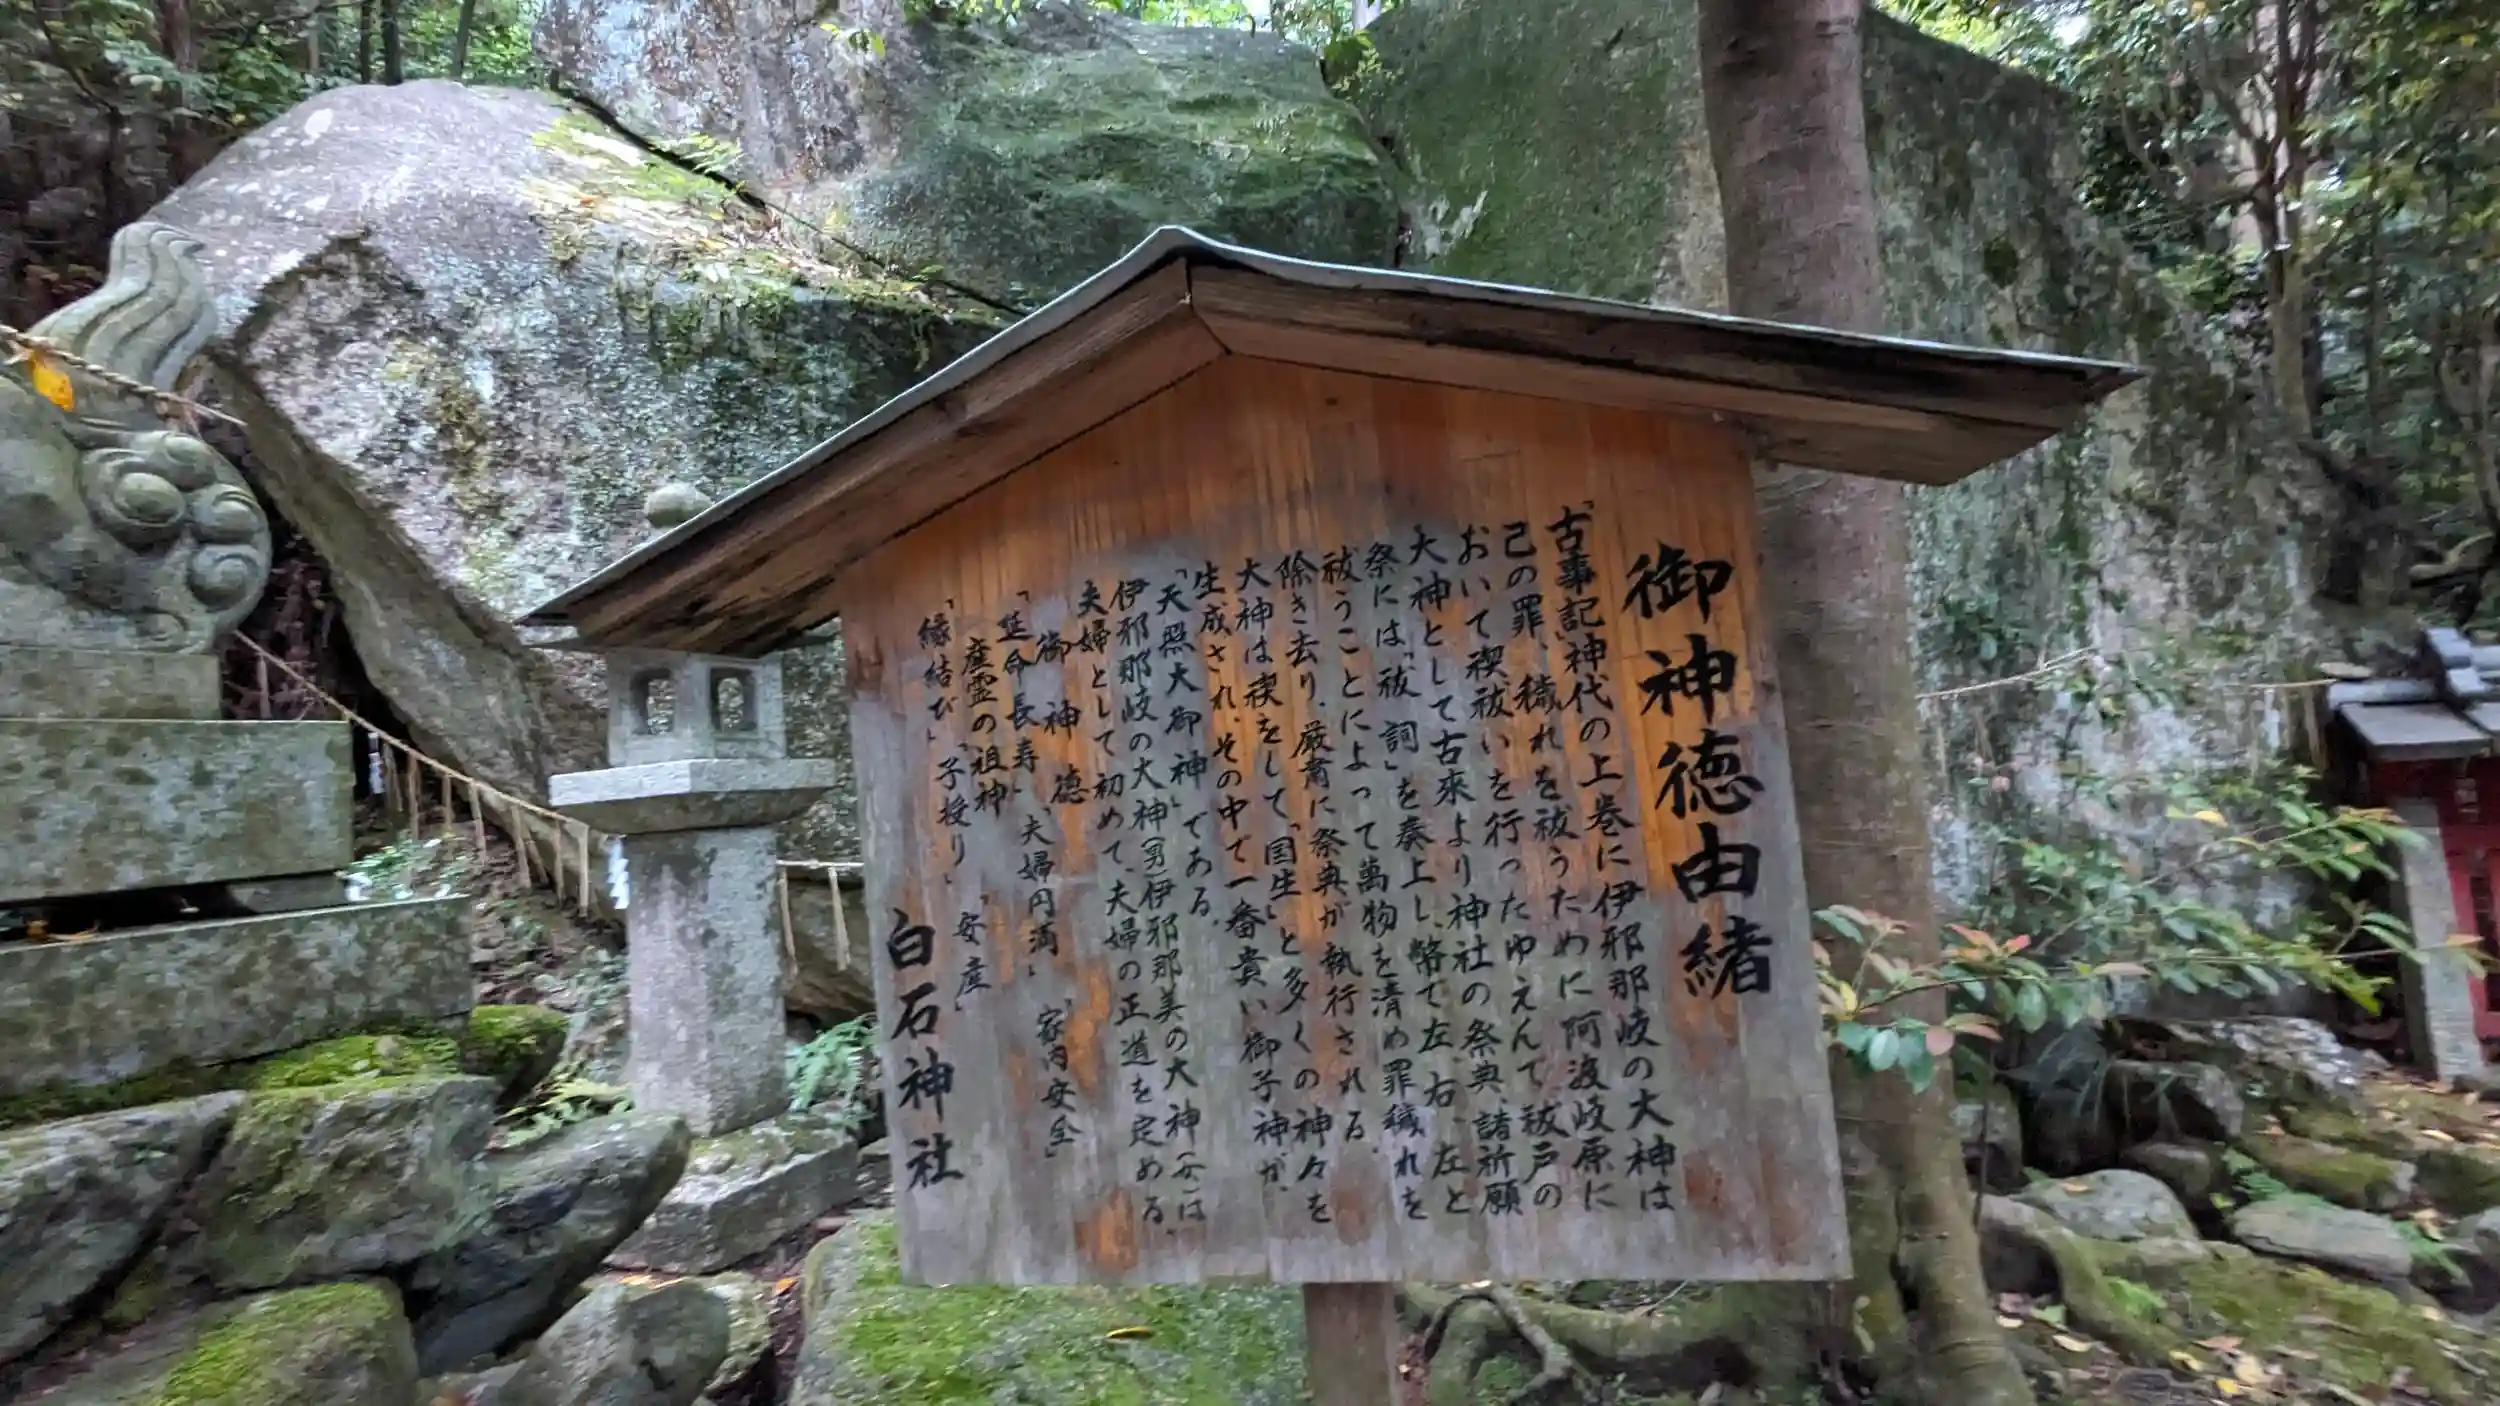 御神徳由緒
「古事記」神代の上巻に伊邪那岐の大神は
己の罪、穢れを祓うために阿波岐原に
おいて禊祓いを行ったゆえんで祓戸の
大神として古來より神社の祭典、諸祈願
祭には「祓詞」を奏上し、幣で左、右、左と
祓うことによって萬物を清め罪穢れを
除き去り、厳粛に祭典が執行される。
大神は禊をして「国生」と多くの神々を
生成され、その中で一番貴い御子神が、
「天照大御神」である。
伊邪那岐の大神(男)伊邪那美の大神(女)は
夫婦として初めて、夫婦の正道を定める
御神徳
「延命長寿」「夫婦円満」「家内安全」
産霊の祖神
「縁結び」「子授り」「安産」
白石神社